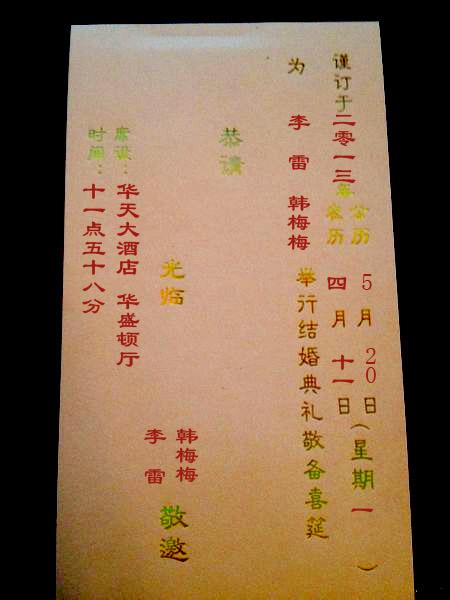 谨订于二零一三年
公历 5月20日(星期一)
农历 四月十一日
为 李雷 韩梅梅 举行结婚典礼敬备喜筵
恭请
光临
韩梅梅
李雷 敬邀
席设：华天大酒店 华盛顿厅
时间：十一点五十八分